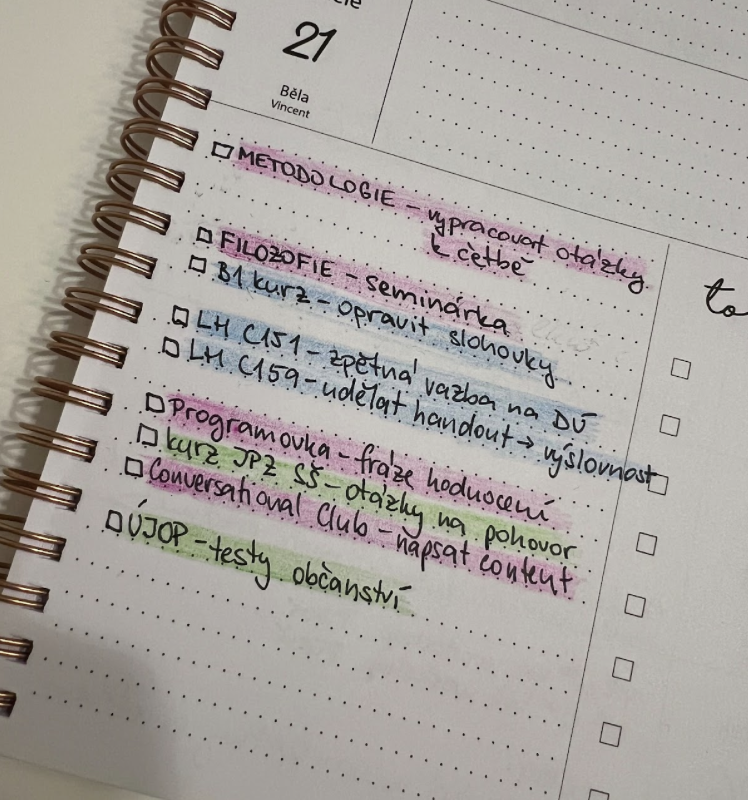 21
Běla
Vincent
METODOLOGIE – vypracovat otázky
k četbě
FILOZOFIE – seminárka
B1 kurz – opravit slohovky
LH C151 – zpětná vazba na DÚ
LH C159 – udělat handout → výslovnost
Programovka – fráze hodnocení
kurz JPZ SŠ – otázky na pohovor
Conversational Club – napsat content
ÚJOP – testy občanství
to